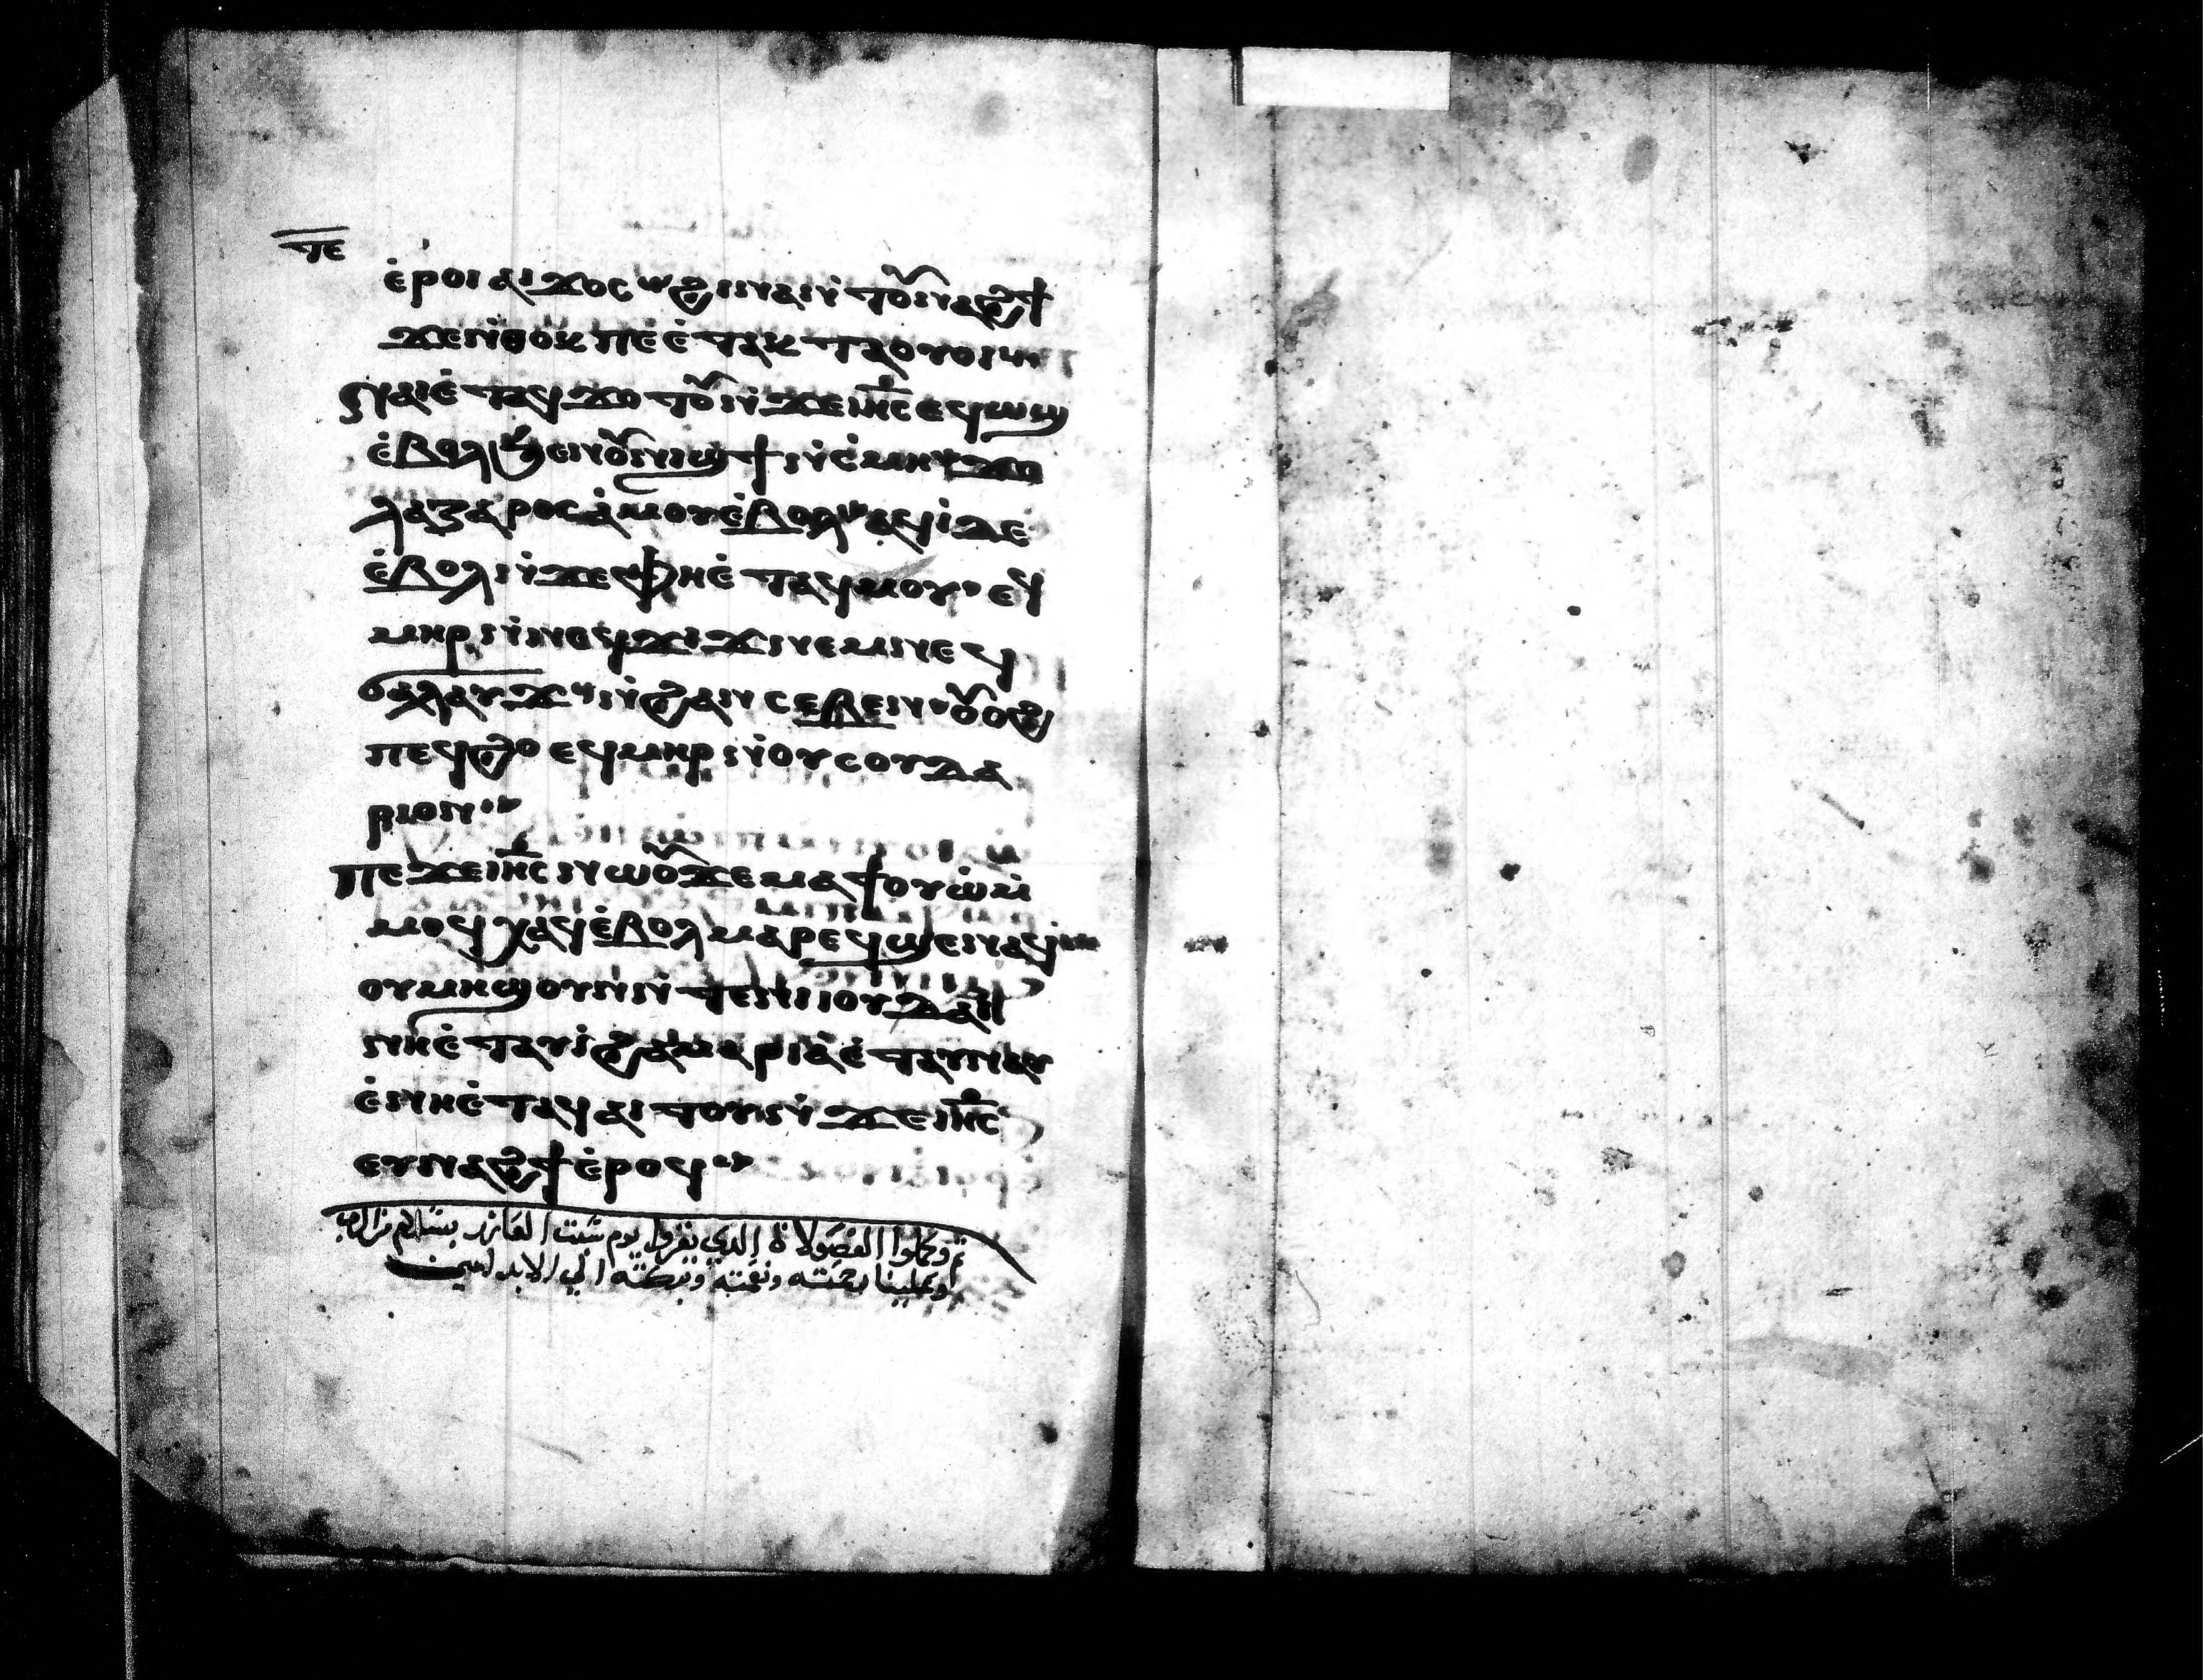 ⲧⲉ
ⲉ̀ⲣⲟⲓ ⲁⲓϫⲟⲥ ϩⲓⲛⲁ ⲛ̀ⲧⲟⲩⲛⲁϩϯ
ϫⲉ ⲛ̀ⲑⲟⲕ ⲡⲉ ⲉ̀ⲧⲁⲕⲧⲁⲟⲩⲟⲓ
ⲛⲁⲓ ⲉ̀ⲧⲁϥϫⲟⲧⲟⲩ ⲛ̀ϫⲉ ⲓⲏ̅ⲥ̅ ⲉϥⲱϣ
ⲉ̀ⲃⲟⲗ ϧⲉⲛ ⲟⲩⲛⲓϣϯ ⲛ̀ⲥ̀ⲙⲏ ϫⲉ
ⲗⲁⲍⲁⲣⲟⲥ ⲁ̀ⲙⲟⲩ ⲉ̀ⲃⲟⲗ ⲁϥⲓ̀ ⲇⲉ
ⲉ̀ⲃⲟⲗ ⲛ̀ϫⲉ ⲫⲏ ⲉ̀ⲧⲁϥⲙⲟⲩ ⲉϥ
ⲙⲏⲣ ⲛ̀ⲛⲉϥϫⲓϫ ⲛⲉⲙ ⲛⲉϥ
ϭⲁⲗⲁⲩϫ ⲛ̀ϩⲁⲛⲥⲉⲃⲉⲛ ⲟⲩⲟϩ
ⲡⲉϥϩⲟ ⲉϥⲙⲏⲣ ⲛ̀ⲟⲩⲥⲟⲩⲇⲁ
ⲣⲓⲟⲛ
ⲡⲉϫⲉ ⲓⲏ̅ⲥ̅ ⲛⲱⲟⲩ ϫⲉ ⲙⲁϯⲟⲩⲱ ⲙ̀
ⲙⲟϥ ⲭⲁϥ ⲉ̀ⲃⲟⲗ ⲙⲁⲣⲉϥϣⲉⲛⲁϥ
ⲟⲩⲙⲏϣ ⲟⲩⲛ ⲛ̀ⲧⲉ ⲛⲓⲓⲟⲩⲇⲁⲓ
ⲛⲏ ⲉ̀ⲧⲁⲩⲓ̀ ϩⲁ ⲙⲁⲣⲓⲁ ⲉ̀ⲧⲁⲩⲛⲁⲩ
ⲉ̀ⲛⲏ ⲉ̀ⲧⲁϥⲁⲓⲧⲟⲩ ⲛ̀ϫⲉ ⲓⲏ̅ⲥ̅
ⲉⲩⲛⲁϩϯ ⲉ̀ⲣⲟϥ
تم وكملوا الفصولاة الذي تقرا يوم سبت العازر بسلام من الرب
وعلينا رحمته ونعمته وبركته الي الابد امين